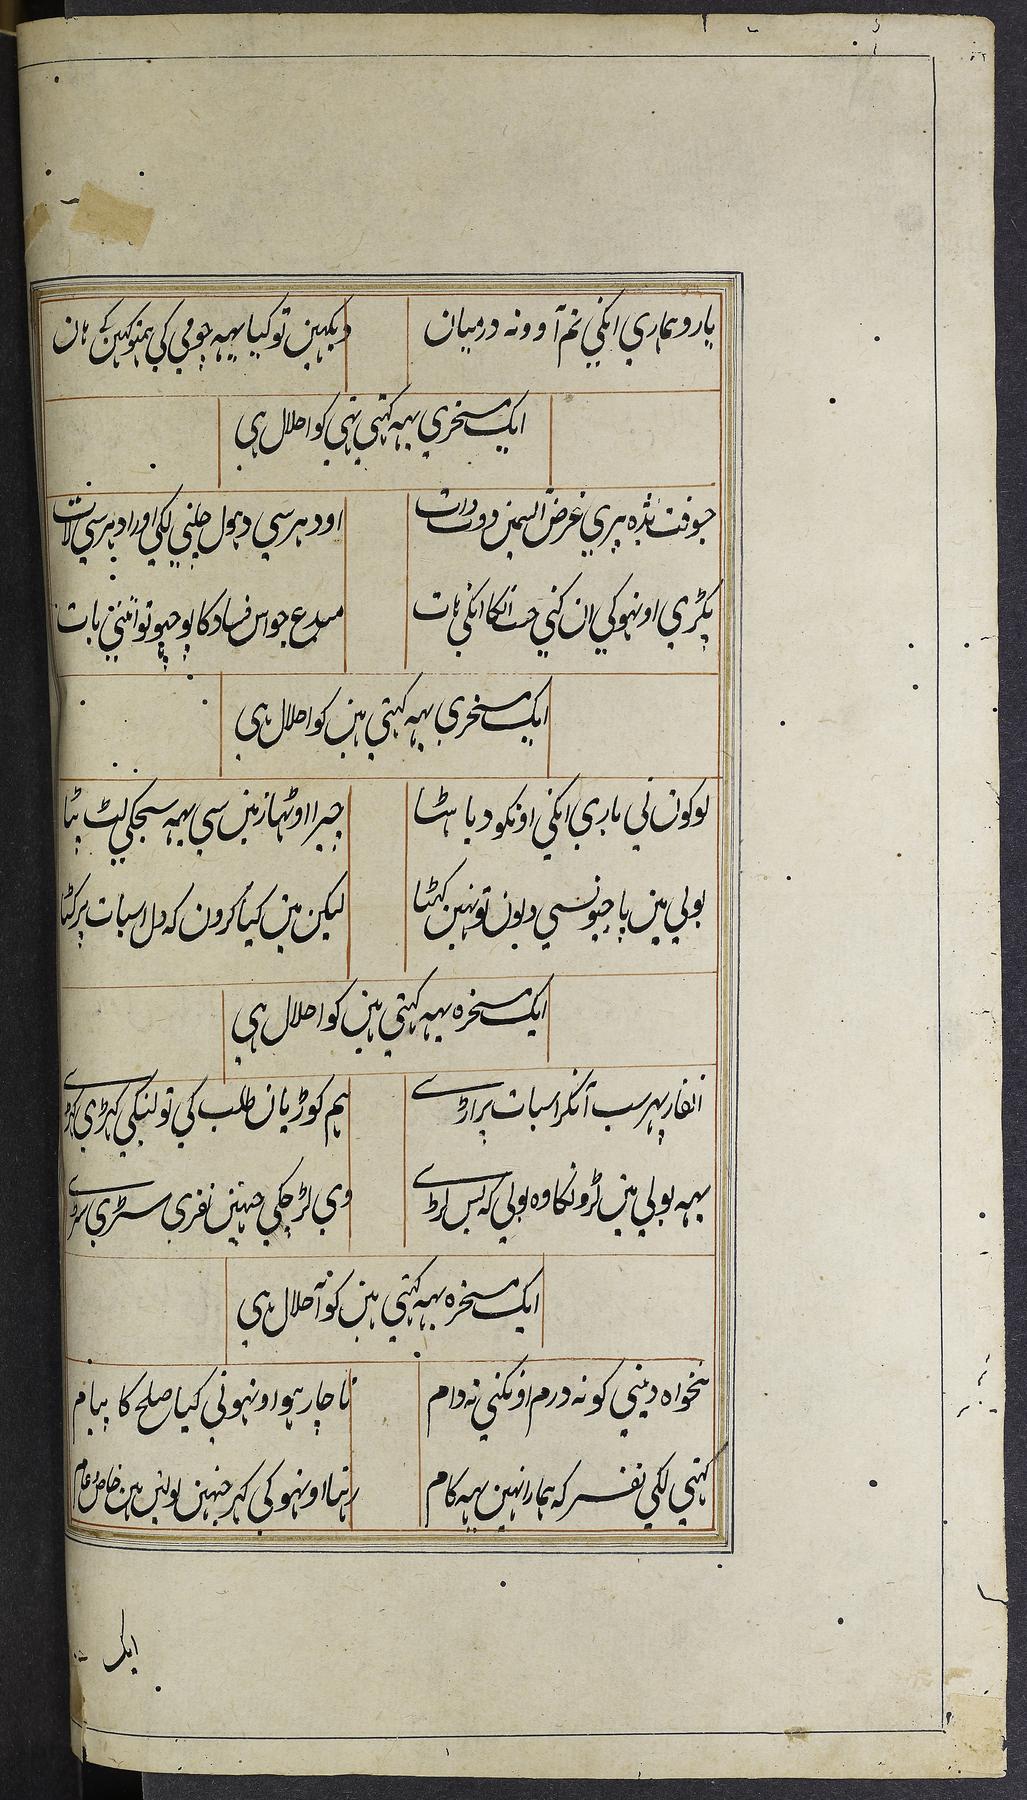 یارو ہماری انکی تم آوو نہ درمیان
دیکہین تو کیا یہہ چوهی کی ہمنو کہین کے ہان
ایک مسخری یہہ کہتی تہی کوا حلال ہی
جوقت بڈہ پیری غرض السمین دوت وات
اودہر سی دہول چلنی لکی اور ادہر سی لات
پکڑی اونہو کی ان کنی جب انکا انکی ہات
مبدع جو اس فساد کا پوچہو تو اتنی بات
ایک مسخری یہہ کہتی ہین کوا حلال ہی
لوکون نی باری انکی اونکو دیا ہٹا
چیرا اوٹہا زمین سی یہہ سجکی لٹ پٹا
بولی ہین پاجیو نسی دبون تو نہین کہٹا
لیکن ہین کیا کرون کہ دل اسبات پر کٹا
ایک مسخرہ یہہ کہتی ہین کوا حلال ہی
انفار پہر سب آنکر اسبات پر اڑے
ہم کوڑیان طلب کی تو لینکی کہڑی کہڑے
یہہ بولی ہین لڑونکا وہ بولی کہ بس لڑے
وی لڑ چکی جنہین نفری سڑی سڑے
ایک مسخرہ یہہ کہتی ہین کوا حلال ہی
تنخواہ دینی کو نہ درم اونکنی نہ دام
ناچار ہوا اونہو نی کیا صلح کا پیام
کہنی لکی نفر کہ ہمارا نہین یہہ کام
رتبا اونہو کی کہر جنہین بولین ہین خاص و عام
ایک